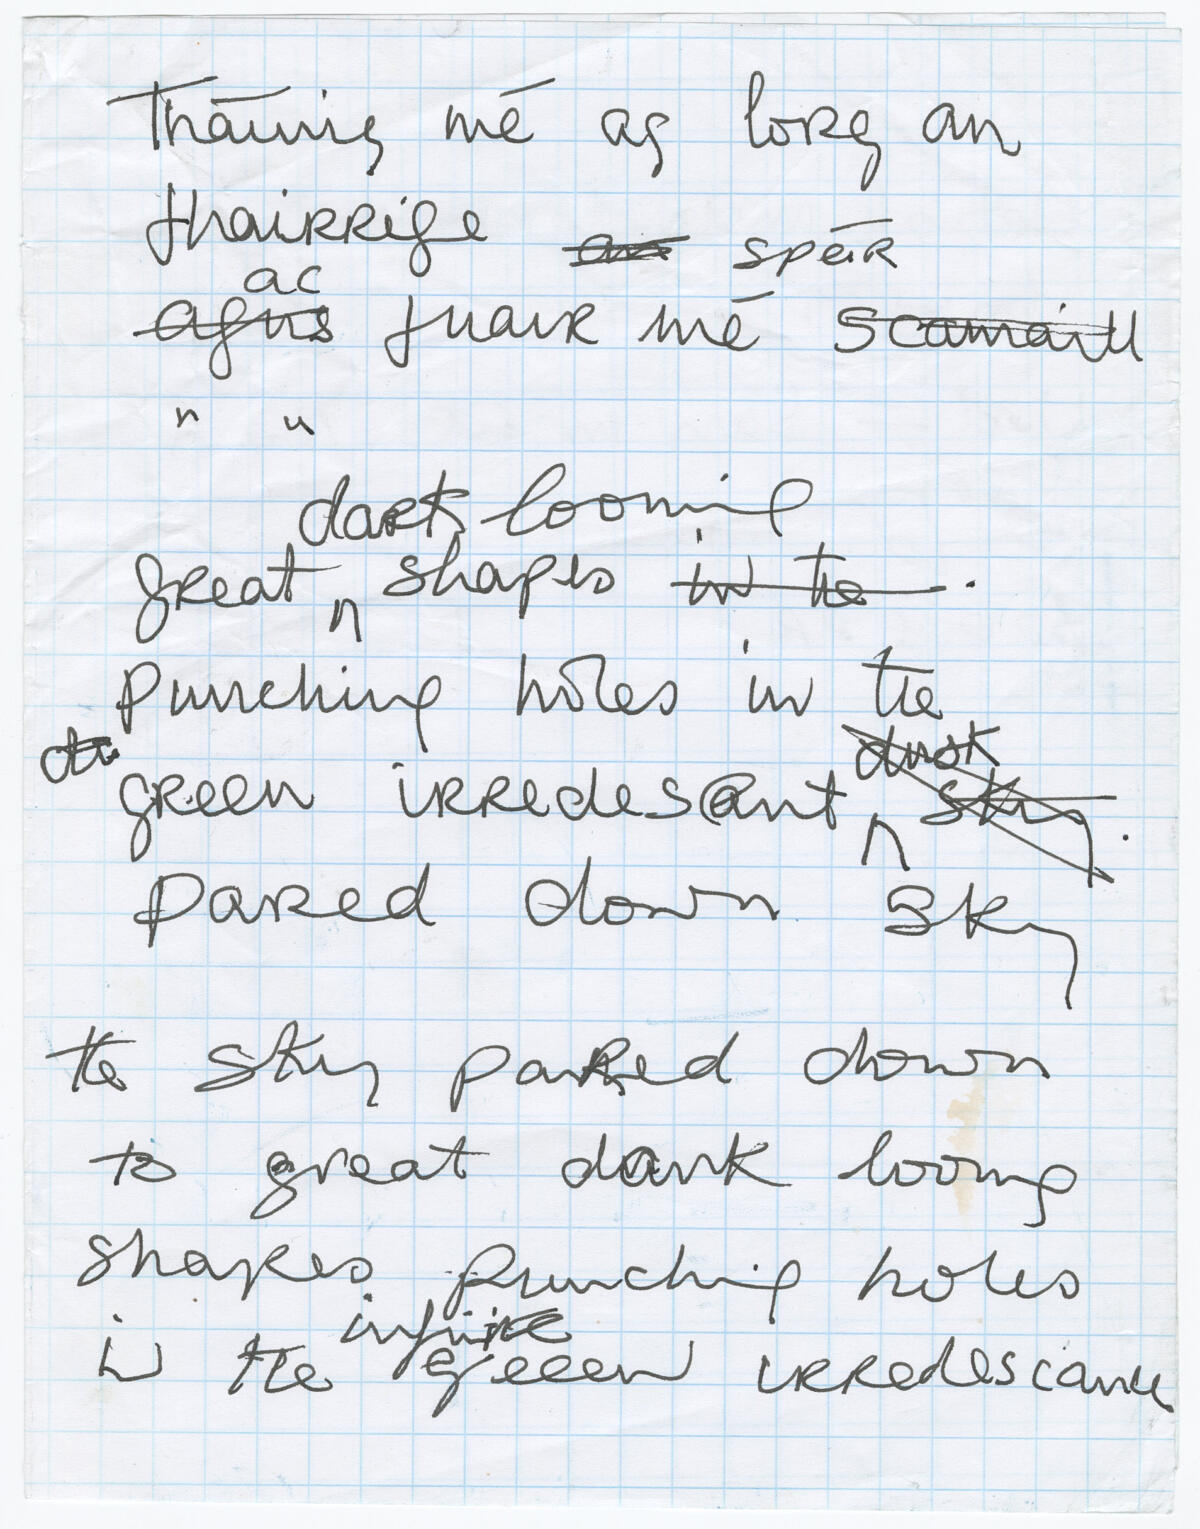 Tháinig mé ag lorg an
fhairrige an spéir
ac
agus fuair mé scamaill
" "
dark looming
great shapes in the
punching holes in the
dusk
green irredescant sky.
pared down sky
the sky pared down
to great dark looming
shapes punching holes
infinite
in the green irredescance